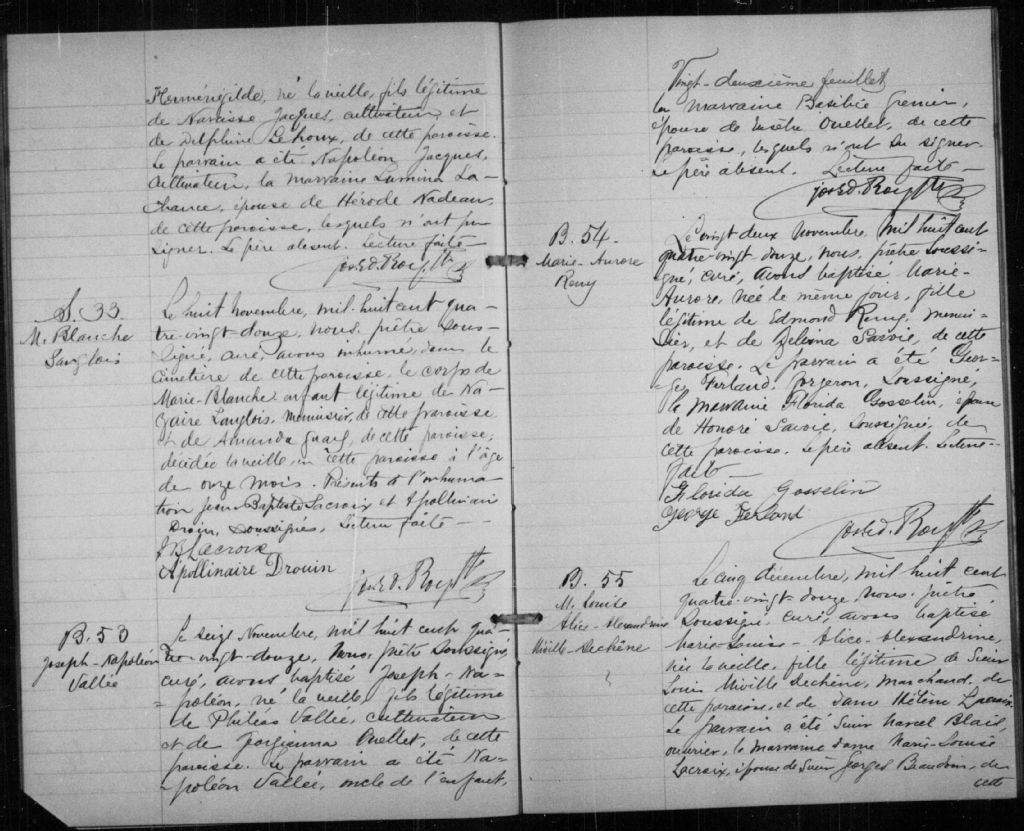 Herménégilde, né la veille, fils légitime
de Narcisse Jacques, cultivateur et
de Delphine Lehoux, de cette paroisse.
Le parrain a été Napoléon Jacques,
cultivateur, la marraine Lumina La-
chance, épouse de Hérode Nadeau,
de cette paroisse, lesquels n'ont pu
signer. Le père absent. Lecture faite
Jos. Ed. Roy Ptre
S. 33
M. Blanche
Langlois
Le huit Novembre, mil-huit cent qua-
tre-vingt-douze, nous, prêtre sous-
signé, curé, avons inhumé, dans le
cimetière de cette paroisse, le corps de
Marie-Blanche enfant légitime de Na-
zaire Langlois, menuisier, de cette paroisse
et de Amanda de cette paroisse,
décédée la veille, en cette paroisse à l'âge
de onze mois. Présents à l'inhuma-
tion Jean-Baptiste Lacroix et Apollinaire
Drouin, soussignés. Lecture faite
JB Lacroix
Apollinaire Drouin
Jos. Ed. Roy Ptre
B. 53
Joseph-Napoléon
Vallée
Le seize Novembre, mil huit cent qua-
tre-vingt-douze, Nous, prêtre soussigné,
curé, avons baptisé Joseph-Na-
poléon, né la veille, fils légitime
de Philéas Vallée, cultivateur
et de Georgianna Ouellet, de cette
paroisse. Le parrain a été Na-
poléon Vallée, oncle de l'enfant,
Vingt-deuxième feuillet
la marraine Basilice Grenier,
épouse de Ouellet, de cette
paroisse, lesquels n'ont su signer.
Le père absent. Lecture faite
Jos. Ed. Roy Ptre
B. 54
Marie-Aurore
Remy
Le vingt deux Novembre, mil huit cent
quatre-vingt douze, nous, prêtre soussi-
gné, curé, avons baptisé Marie-
Aurore, née le même jour, fille
légitime de Edmond Remy, menui-
sier, et de Délvina Savoie, de cette
paroisse. Le parrain a été Geor-
ges Ferland, forgeron, soussigné,
la marraine Florida Gosselin, épouse
de Honoré Savoie, soussignée, de
cette paroisse. Le père absent. Lecture
faite
Florida Gosselin
George Ferland
Jos. Ed. Roy Ptre
B. 55
M. Louise
Alice-Alexandrine
Miville-Dechêne
Le cinq décembre, mil huit cent
quatre-vingt douze, nous, prêtre
soussigné, curé, avons baptisé
Marie-Louise-Alice-Alexandrine,
née la veille, fille légitime de Sieur
Louis Miville Dechêne, marchand, de
cette paroisse, et de Dame Hélène Lacroix.
Le parrain a été Sieur Marcel Blais,
ouvrier, la marraine dame Marie-Louise
Lacroix, épouse de Sieur Georges Beaudoin, de
cette